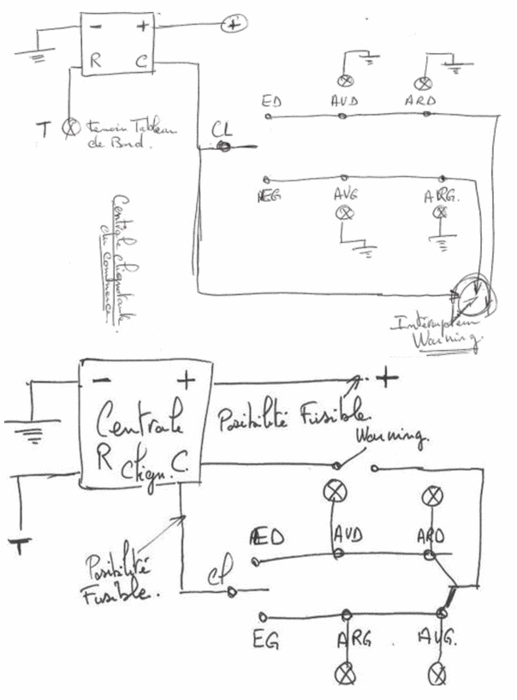 - + +
R C
T témoin Tableau
de Bord.
CL
ED AVD ARD
EG AVG ARG.
Centrale clignotante
du commerce.
Interrupteur
Warning.
- + +
Centrale
R Clign. C.
Posibilité Fusible.
Warning.
T
Posibilité
Fusible.
Cl
ED AVD ARD
EG ARG. AVG.